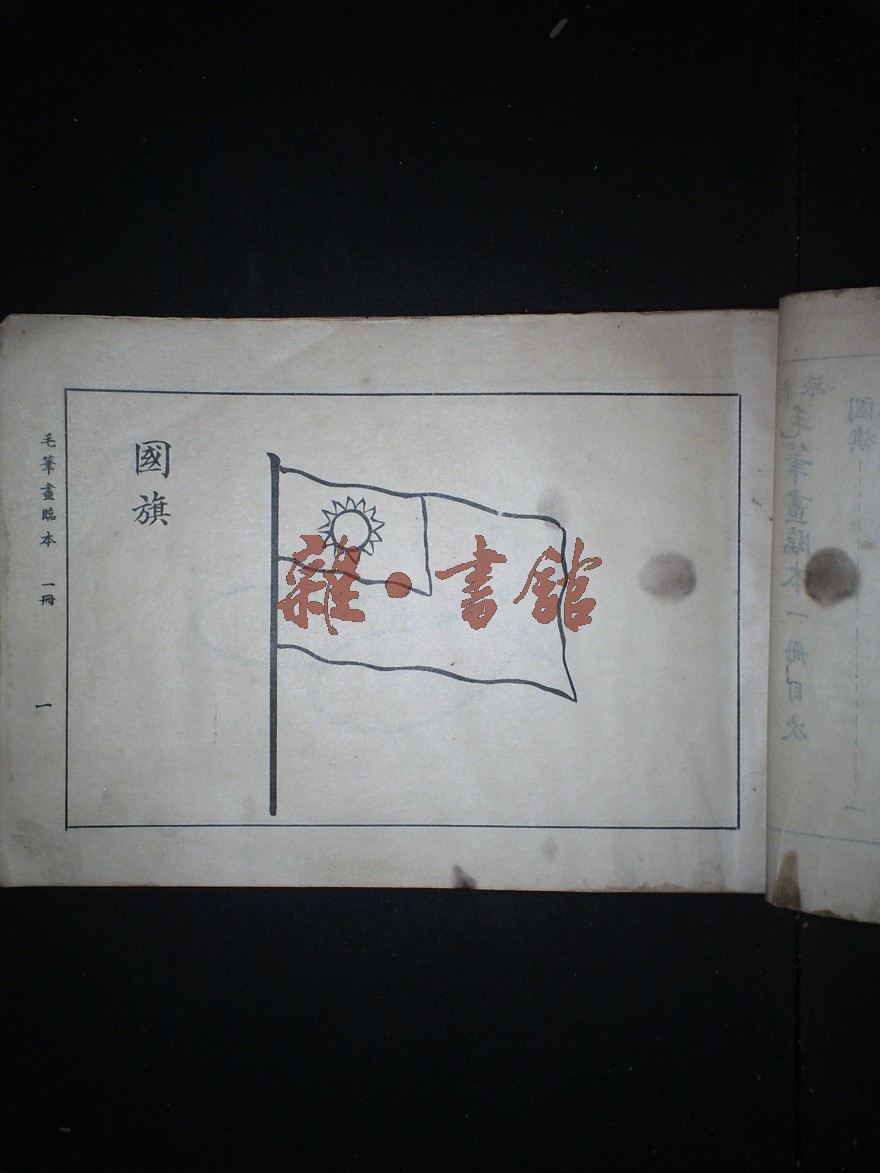 國旗
毛筆畫臨本 一冊
一
雜·書館
國旗 一
毛筆畫臨本一冊目次